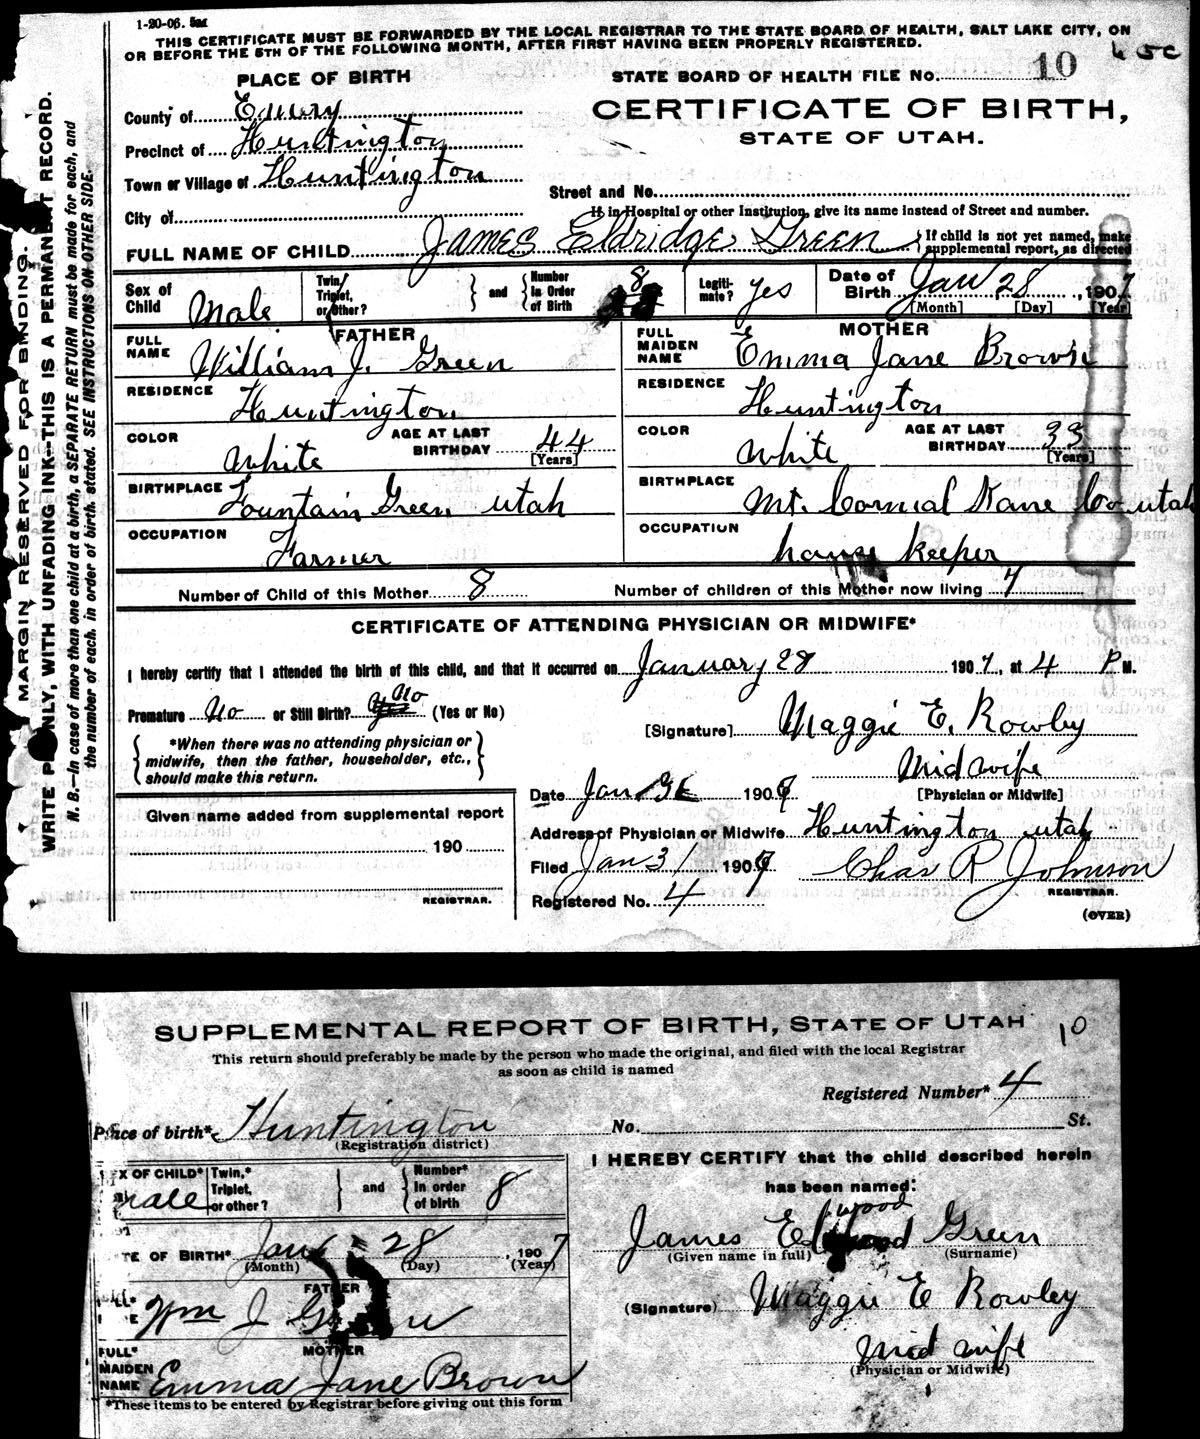 1-20-06. 5M
THIS CERTIFICATE MUST BE FORWARDED BY THE LOCAL REGISTRAR TO THE STATE BOARD OF HEALTH, SALT LAKE CITY, ON
OR BEFORE THE 5TH OF THE FOLLOWING MONTH, AFTER FIRST HAVING BEEN PROPERLY REGISTERED.
PLACE OF BIRTH
STATE BOARD OF HEALTH FILE No. 10
CERTIFICATE OF BIRTH,
STATE OF UTAH.
County of Emery
Precinct of Huntington
Town or Village of Huntington
City of
Street and No.
If in Hospital or other Institution, give its name instead of Street and number.
FULL NAME OF CHILD James Eldridge Green { If child is not yet named, make supplemental report, as directed
Sex of Child Male
Twin, Triplet, or Other? } and { Number in Order of Birth 8
Legitimate? Yes
Date of Birth Jan 28, 1907
[Month] [Day] [Year]
FATHER
FULL NAME William J. Green
RESIDENCE Huntington
COLOR White
AGE AT LAST BIRTHDAY 44 [Years]
BIRTHPLACE Fountain Green utah
OCCUPATION Farmer
MOTHER
FULL MAIDEN NAME Emma Jane Brown
RESIDENCE Huntington
COLOR White
AGE AT LAST BIRTHDAY 33 [Years]
BIRTHPLACE Mt. Cormial Kane Co utah
OCCUPATION house keeper
Number of Child of this Mother 8
Number of children of this Mother now living 7
CERTIFICATE OF ATTENDING PHYSICIAN OR MIDWIFE*
I hereby certify that I attended the birth of this child, and that it occurred on January 28 1907, at 4 P M.
Premature No or Still Birth? Yes No (Yes or No)
*When there was no attending physician or midwife, then the father, householder, etc., should make this return.
[Signature] Maggie E. Rowley
Midwife
[Physician or Midwife]
Date Jan 31 1907
Address of Physician or Midwife Huntington utah
Filed Jan 31 1907
Chas R Johnson
REGISTRAR.
Registered No. 4
(OVER)
Given name added from supplemental report
190
REGISTRAR.
MARGIN RESERVED FOR BINDING.
WRITE PLAINLY, WITH UNFADING INK—THIS IS A PERMANENT RECORD.
N. B.—In case of more than one child at a birth, a SEPARATE RETURN must be made for each, and
the number of each, in order of birth, stated. SEE INSTRUCTIONS ON OTHER SIDE.
SUPPLEMENTAL REPORT OF BIRTH, STATE OF UTAH 10
This return should preferably be made by the person who made the original, and filed with the local Registrar
as soon as child is named
Registered Number* 4
Place of birth* Huntington No. St.
(Registration district)
SEX OF CHILD* male
Twin,* Triplet, or other? } and { Number* in order of birth 8
DATE OF BIRTH* Jan 28, 1907
(Month) (Day) (Year)
FATHER
Wm J Green
MOTHER
FULL* MAIDEN NAME Emma Jane Brown
*These items to be entered by Registrar before giving out this form
I HEREBY CERTIFY that the child described herein
has been named:
James Elwood Green
(Given name in full) (Surname)
(Signature) Maggie E Rowley
Mid wife
(Physician or Midwife)